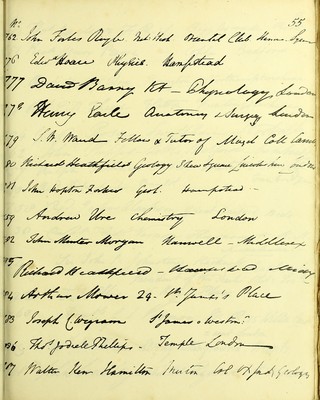 No. 55
762 John Forbes Royle Nat. Hist Oriental Club Hanov. Square
776 Edwd Hoare Physics. Hampstead
777 David Barry Kt - Physiology, London
778 Henry Earle Anatomy & Surgery London
779 S. W. Waud Fellow & Tutor of Magd Coll Camb
780 Richard Heathfield Geology Square Lincolns Inn London
John Hopton Forbes Geol. Hampstead -
Andrew Ure Chemistry London
782 John Minter Morgan Hanwell - Middlesex
785 Richard Heathfield - Hampstead Middx
784 Arthur Mower 29. James's Place
783 Joseph C Wigram St James's Westmr
786 Thos Jodrell Phillips - Temple London
787 Walter Kerr Hamilton Merton Col Oxford Geology